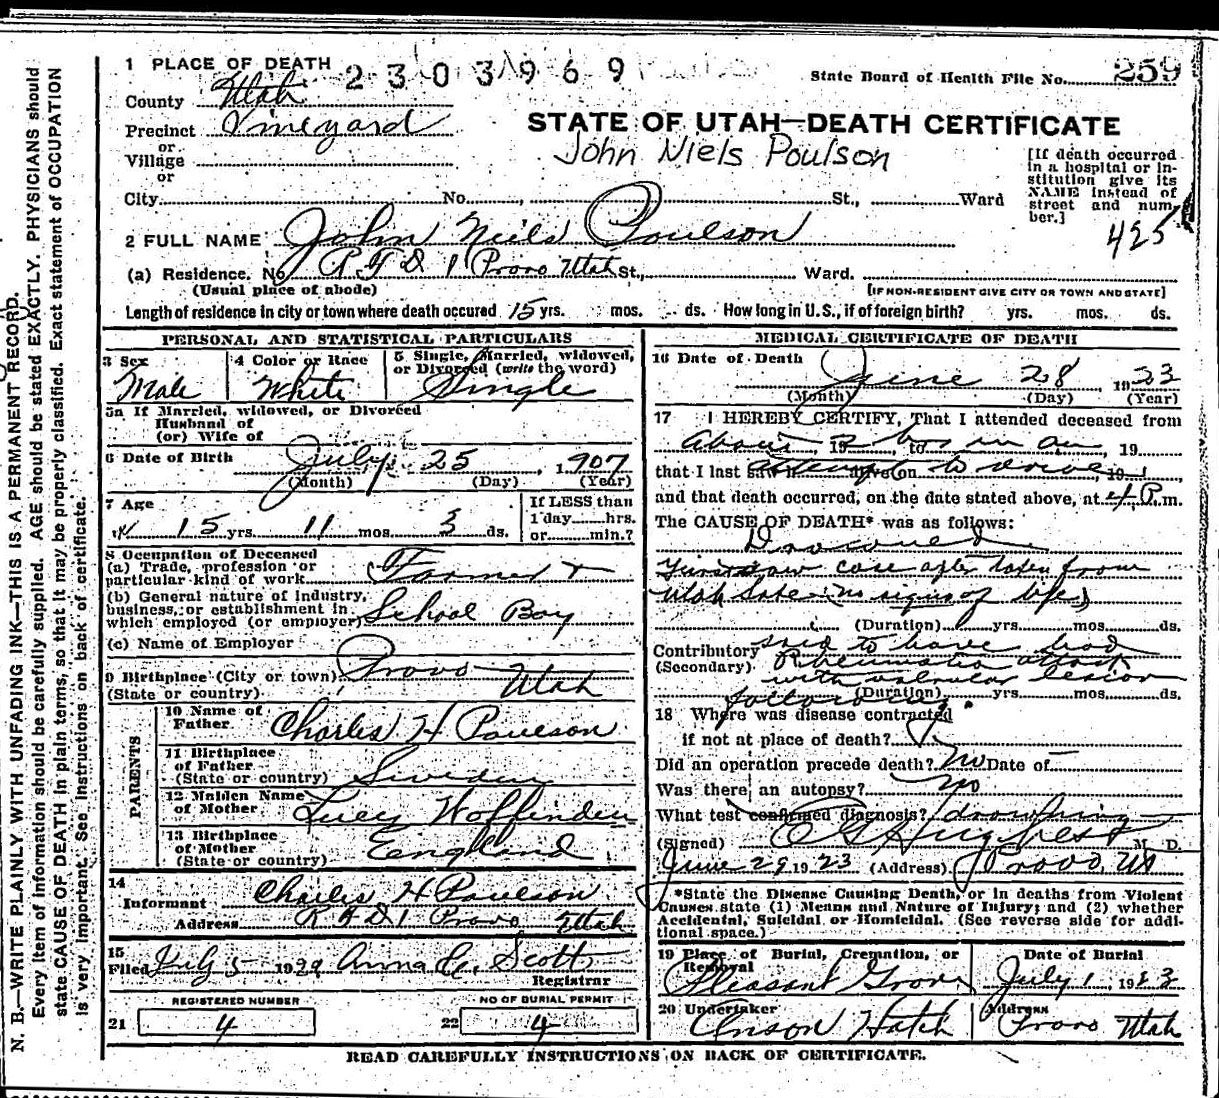 1 PLACE OF DEATH 2303969
State Board of Health File No. 259
County Utah
Precinct Vineyard
or
Village
or
STATE OF UTAH—DEATH CERTIFICATE
John Niels Poulson
[If death occurred in a hospital or institution give its NAME instead of street and number.]
425
City No. , St., Ward
2 FULL NAME John Niels Poulson
(a) Residence. No. R F D 1 Provo Utah St., Ward.
(Usual place of abode) [IF NON-RESIDENT GIVE CITY OR TOWN AND STATE]
Length of residence in city or town where death occured 15 yrs. mos. ds. How long in U.S., if of foreign birth? yrs. mos. ds.
PERSONAL AND STATISTICAL PARTICULARS
3 Sex Male
4 Color or Race White
5 Single, Married, widowed, or Divorced (write the word) Single
5a If Married, widowed, or Divorced
Husband of
(or) Wife of
6 Date of Birth July 25, 1907
(Month) (Day) (Year)
7 Age
15 yrs. 11 mos. 3 ds.
If LESS than
1 day hrs.
or min.?
8 Occupation of Deceased
(a) Trade, profession or
particular kind of work Farmer +
(b) General nature of Industry,
business, or establishment in
which employed (or employer) School Boy
(c) Name of Employer
9 Birthplace (City or town) Provo
(State or country) Utah
PARENTS
10 Name of
Father. Charles H Poulson
11 Birthplace
of Father
(State or country) Sweden
12 Maiden Name
of Mother Lucy Woffinden
13 Birthplace
of Mother
(State or country) England
14
Informant Charles H Poulson
Address R F D 1 Provo Utah
15
Filed July 5 19 Anna C. Scott
Registrar
REGISTERED NUMBER
21 4
NO OF BURIAL PERMIT
22 4
MEDICAL CERTIFICATE OF DEATH
16 Date of Death
June 28, 1923
(Month) (Day) (Year)
17 I HEREBY CERTIFY, That I attended deceased from
about , 19 to , 19
that I last saw h alive on , 19
and that death occurred, on the date stated above, at 4 P.m.
The CAUSE OF DEATH* was as follows:
Drowned
First saw case after taken from
Utah Lake (no signs of life)
(Duration) yrs. mos. ds.
Contributory said to have had
(Secondary) Rheumatic attack
with valvular lesion
following. (Duration) yrs. mos. ds.
18 Where was disease contracted
if not at place of death?
Did an operation precede death? No Date of
Was there an autopsy? no
What test confirmed diagnosis? drowning
(Signed) M. D.
June 29, 1923 (Address) Provo, Ut
*State the Disease Causing Death, or in deaths from Violent
Causes, state (1) Means and Nature of Injury; and (2) whether
Accidental, Suicidal or Homicidal. (See reverse side for additional space.)
19 Place of Burial, Cremation, or
Removal
Pleasant Grove
Date of Burial
July 1, 1923
20 Undertaker
Anson Hatch
Address
Provo Utah
READ CAREFULLY INSTRUCTIONS ON BACK OF CERTIFICATE.
N. B.—WRITE PLAINLY WITH UNFADING INK—THIS IS A PERMANENT RECORD.
Every item of Information should be carefully supplied. AGE should be stated EXACTLY. PHYSICIANS should
state CAUSE OF DEATH in plain terms, so that it may be properly classified. Exact statement of OCCUPATION
is very important. See instructions on back of certificate.